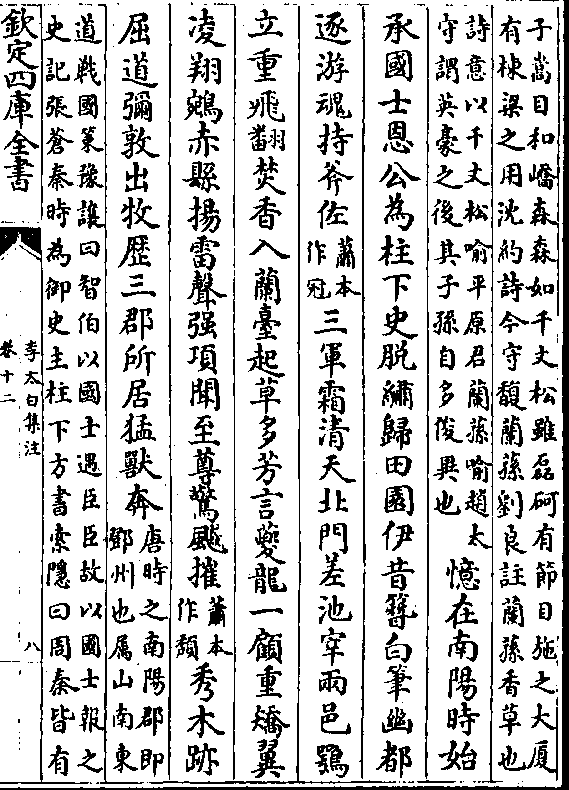 子嵩目和嶠森森如千丈松雖磊砢有節目施之大厦
有棟梁之用沈約詩今守馥蘭蓀劉良註蘭蓀香草也
詩意以千丈松喻平原君蘭蓀喻趙太
守謂英豪之後其子孫自多俊異也
憶在南陽時始
承國士恩公為柱下史脱繡歸田園伊昔簮白筆幽都
逐游魂持斧佐蕭本作冠三軍霜清天北門差池宰兩邑鶚
立重飛翻焚香入蘭臺起草多芳言夔龍一顧重矯翼
凌翔鵷赤縣揚雷聲强項聞至尊驚飈摧蕭本作頽秀木跡
屈道彌敦出牧歴三郡所居猛獸奔唐時之南陽郡即鄧州也属山南東
道戰國策豫讓曰智伯以國士遇臣臣故以國士報之
史記張蒼秦時為御史主柱下方書索隠曰周秦皆有
欽定四庫全書
李太白集注
卷十二
八